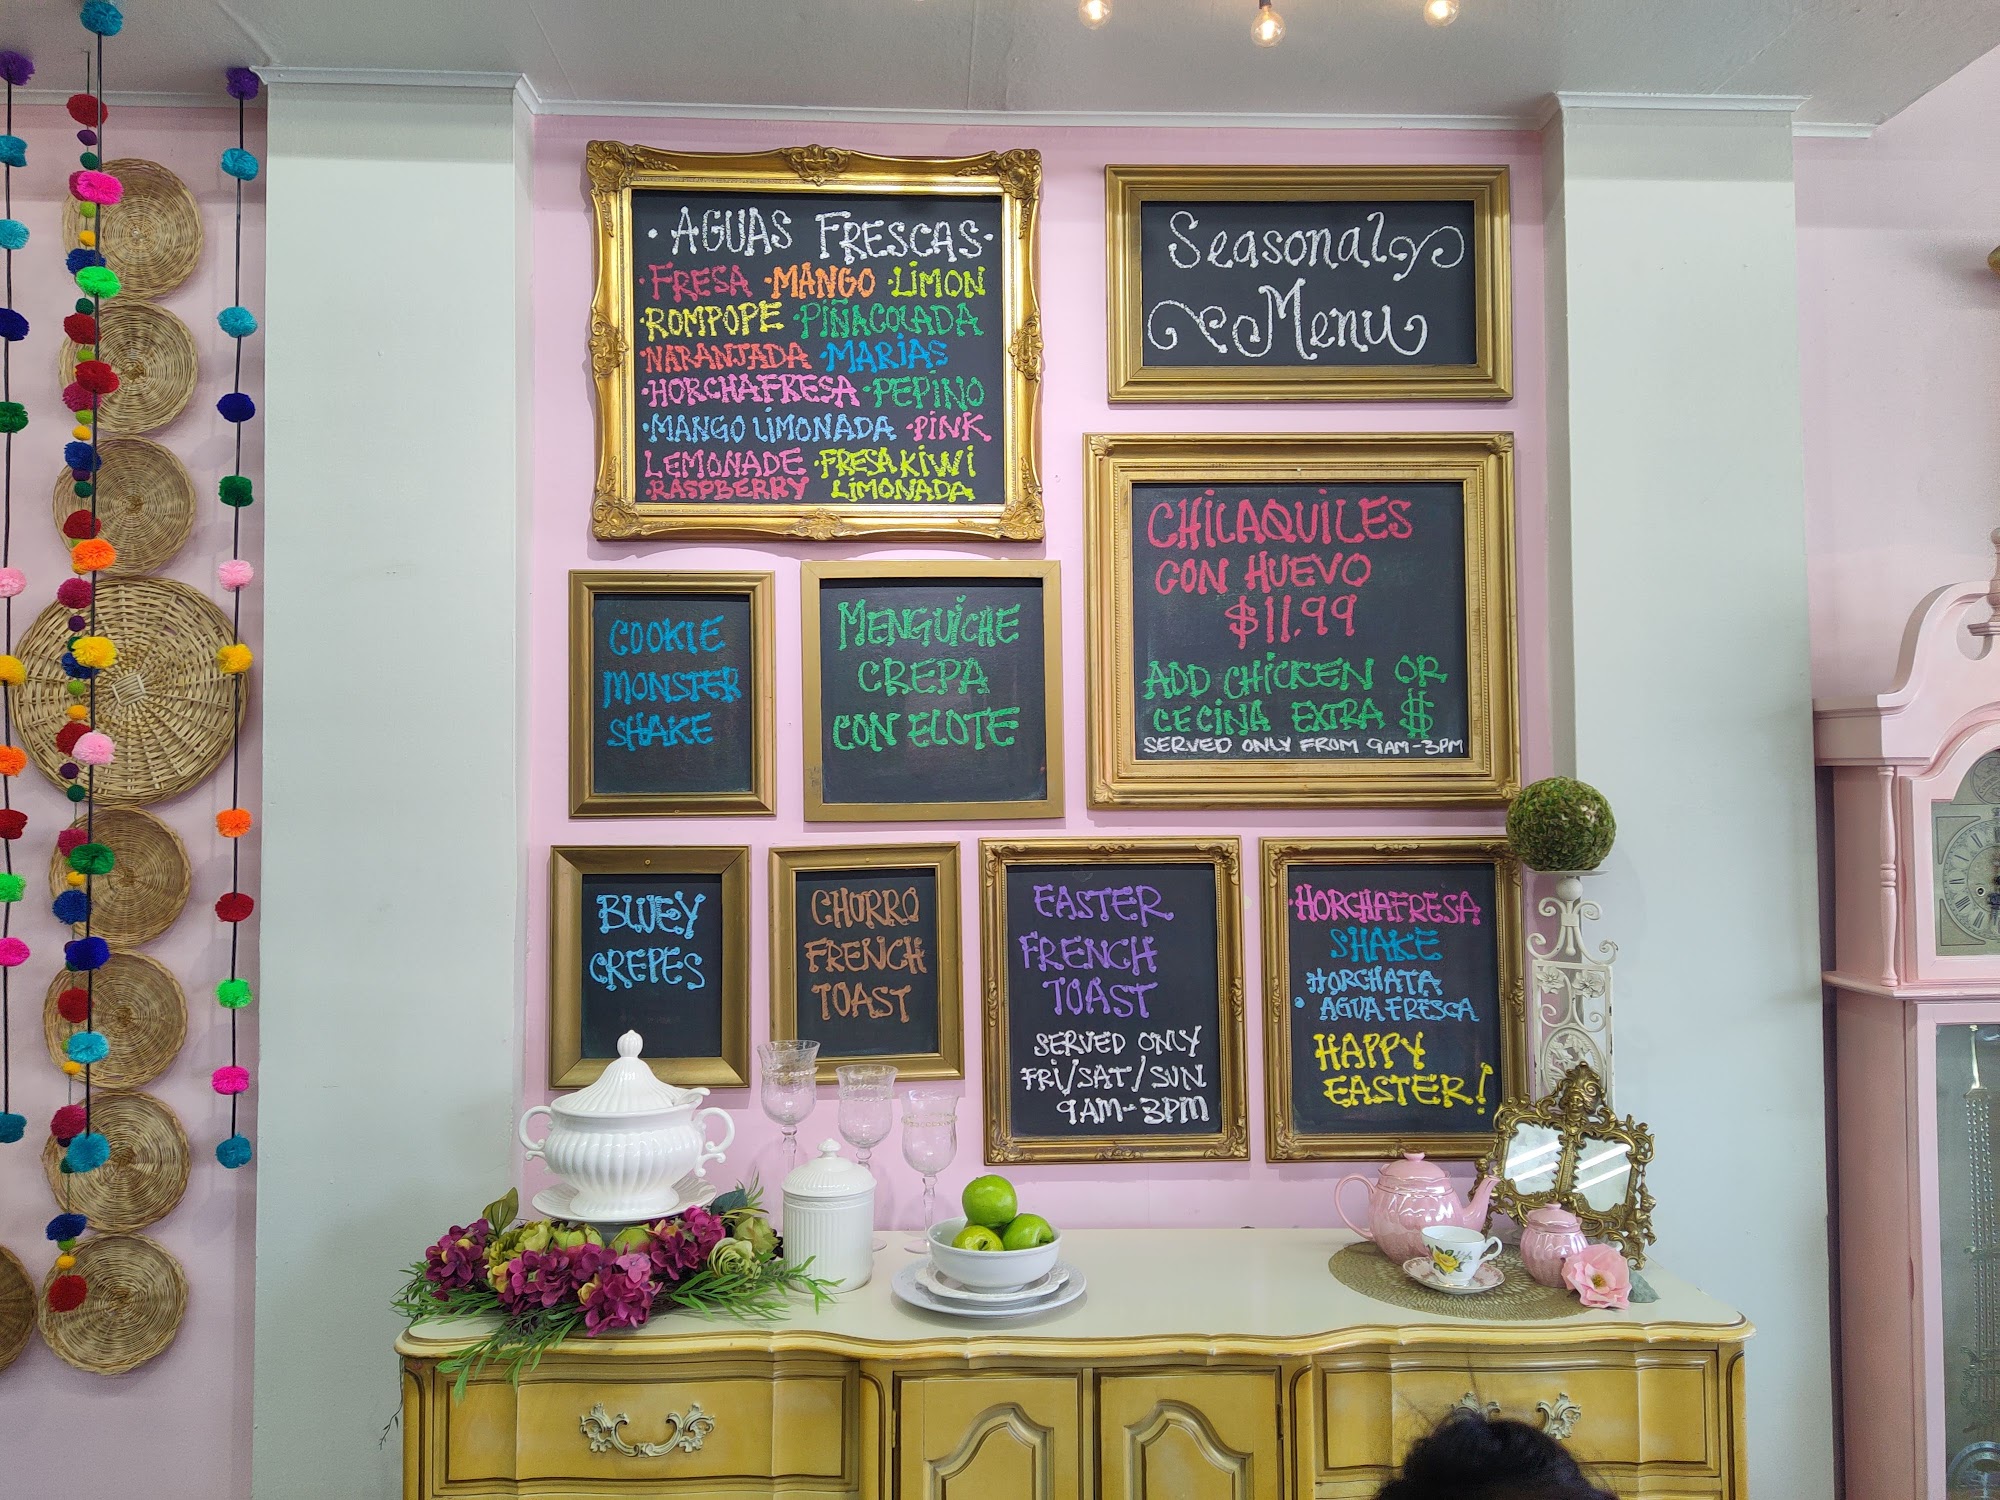 · AGUAS FRESCAS ·
· FRESA · MANGO · LIMON
· ROMPOPE · PIÑA COLADA
· NARANJADA · MARIAS
· HORCHAFRESA · PEPINO
· MANGO LIMONADA · PINK
LEMONADE · FRESA KIWI
· RASPBERRY LIMONADA
Seasonal
Menu
CHILAQUILES
CON HUEVO
$11.99
ADD CHICKEN OR
CECINA EXTRA $
SERVED ONLY FROM 9AM-3PM
COOKIE
MONSTER
SHAKE
MENGUICHE
CREPA
CON ELOTE
BLUEY
CREPES
CHURRO
FRENCH
TOAST
EASTER
FRENCH
TOAST
SERVED ONLY
FRI/SAT/SUN
9AM-3PM
· HORCHAFRESA
SHAKE
HORCHATA
· AGUA FRESCA
HAPPY
EASTER!